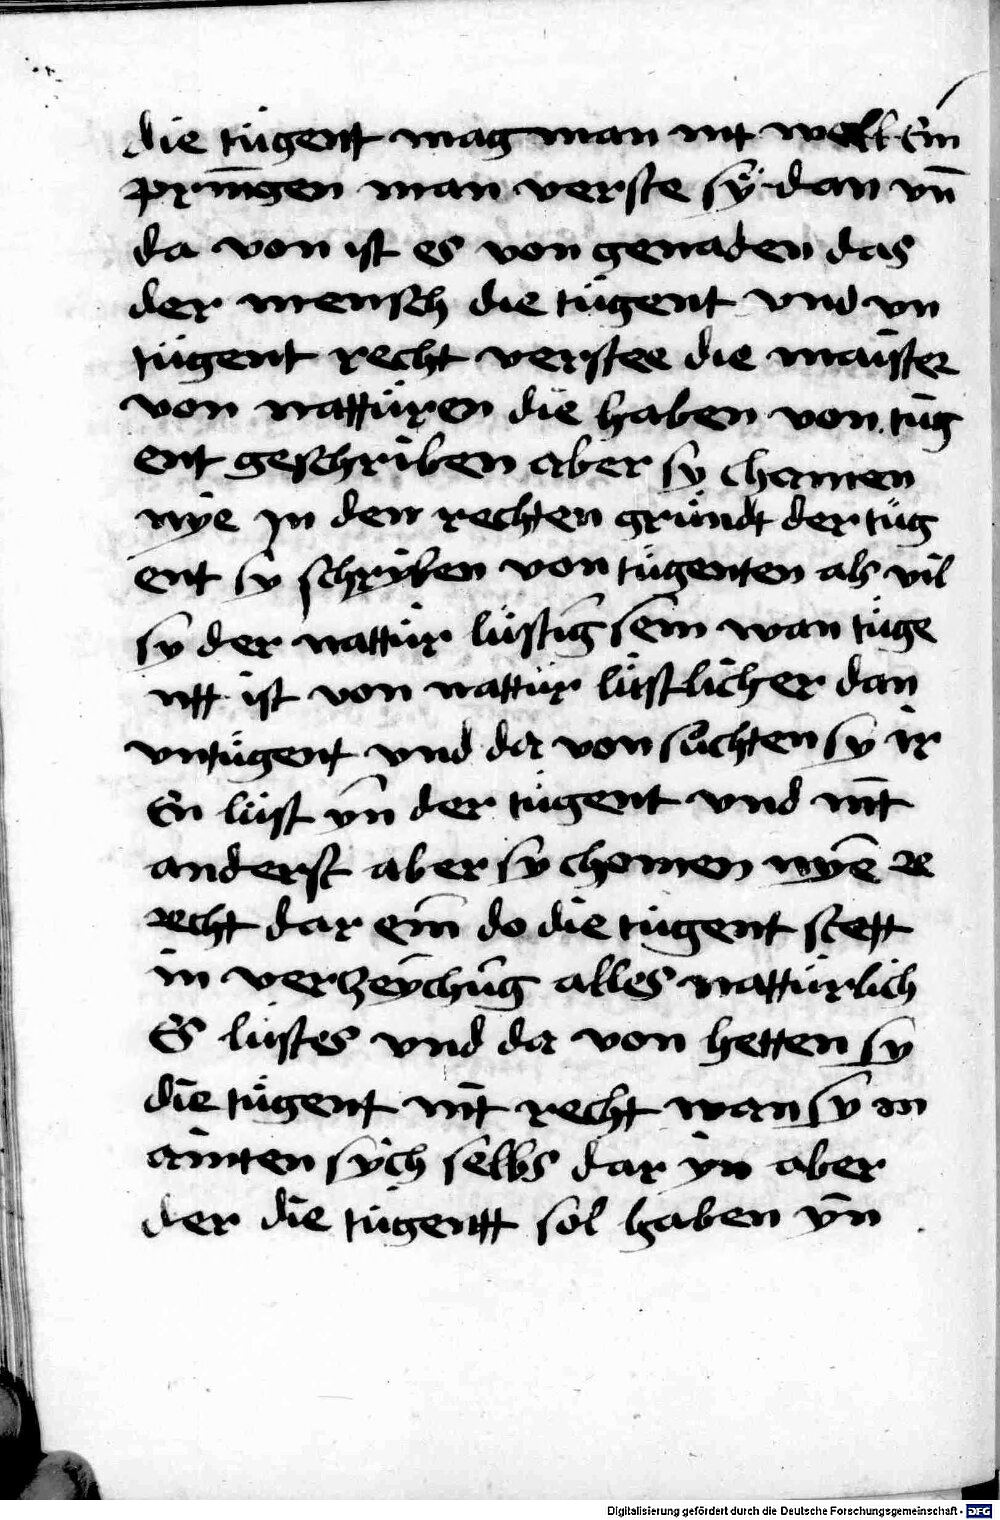 die tügentt mag man nit woll Ein
pringen man verste sÿ dan vn̄
da von ist es von genaden das
der mensch die tügent vnd vn
tügent recht verstee die maister
von nattüren die haben von tüg
ent geschriben aber sy chamen
nÿe jn den rechten gründt der tüg
ent sy schryben von tügenten als vil
sy der nattür lüstig sein wan tüge
ntt ist von nattür lüstlicher dan
vntügent vnd da von süchten sy ir
En lüst yn̄ der tügent vnd nit
anderst aber sy chomen nÿe re
recht dar ein do die tügent stett
in verzeychūg alles nattürlich
Es lüstes vnd da von hetten sy
die tügent nit recht wan sy m
ainten sÿch selbs dar ÿn aber
der die tügentt sol haben yn̄
Digitalisierung gefördert durch die Deutsche Forschungsgemeinschaft - DFG